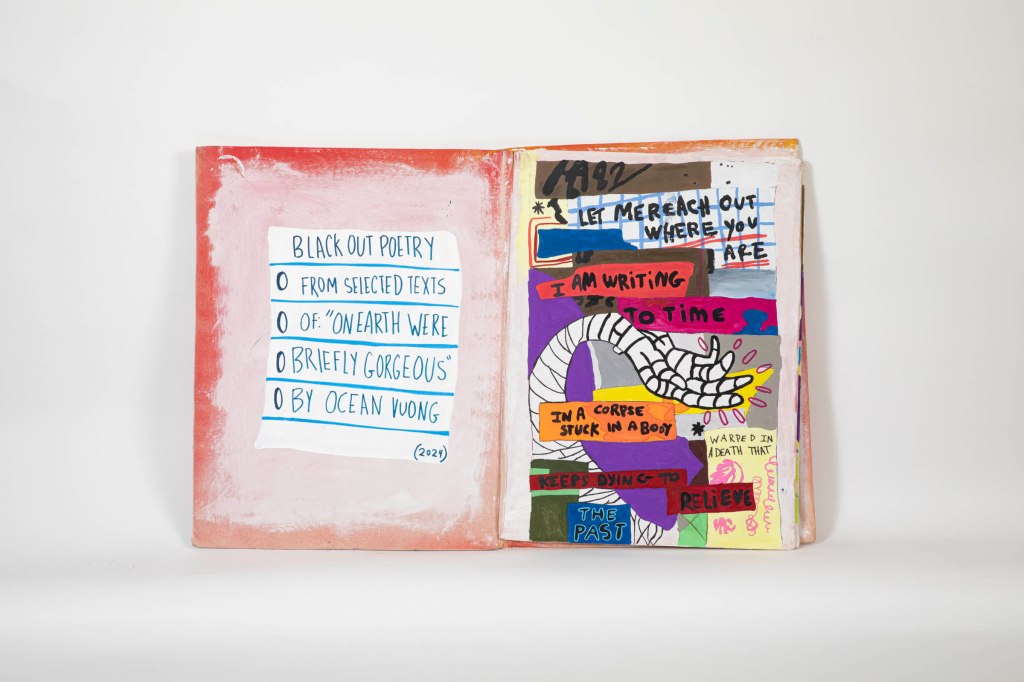 BLACK OUT POETRY
FROM SELECTED TEXTS
OF: "ON EARTH WERE
BRIEFLY GORGEOUS"
BY OCEAN VUONG
(2024)
LET ME REACH OUT
WHERE YOU
ARE
I AM WRITING
TO TIME
IN A CORPSE
STUCK IN A BODY
WARPED IN
A DEATH THAT
KEEPS DYING TO
RELIEVE
THE
PAST